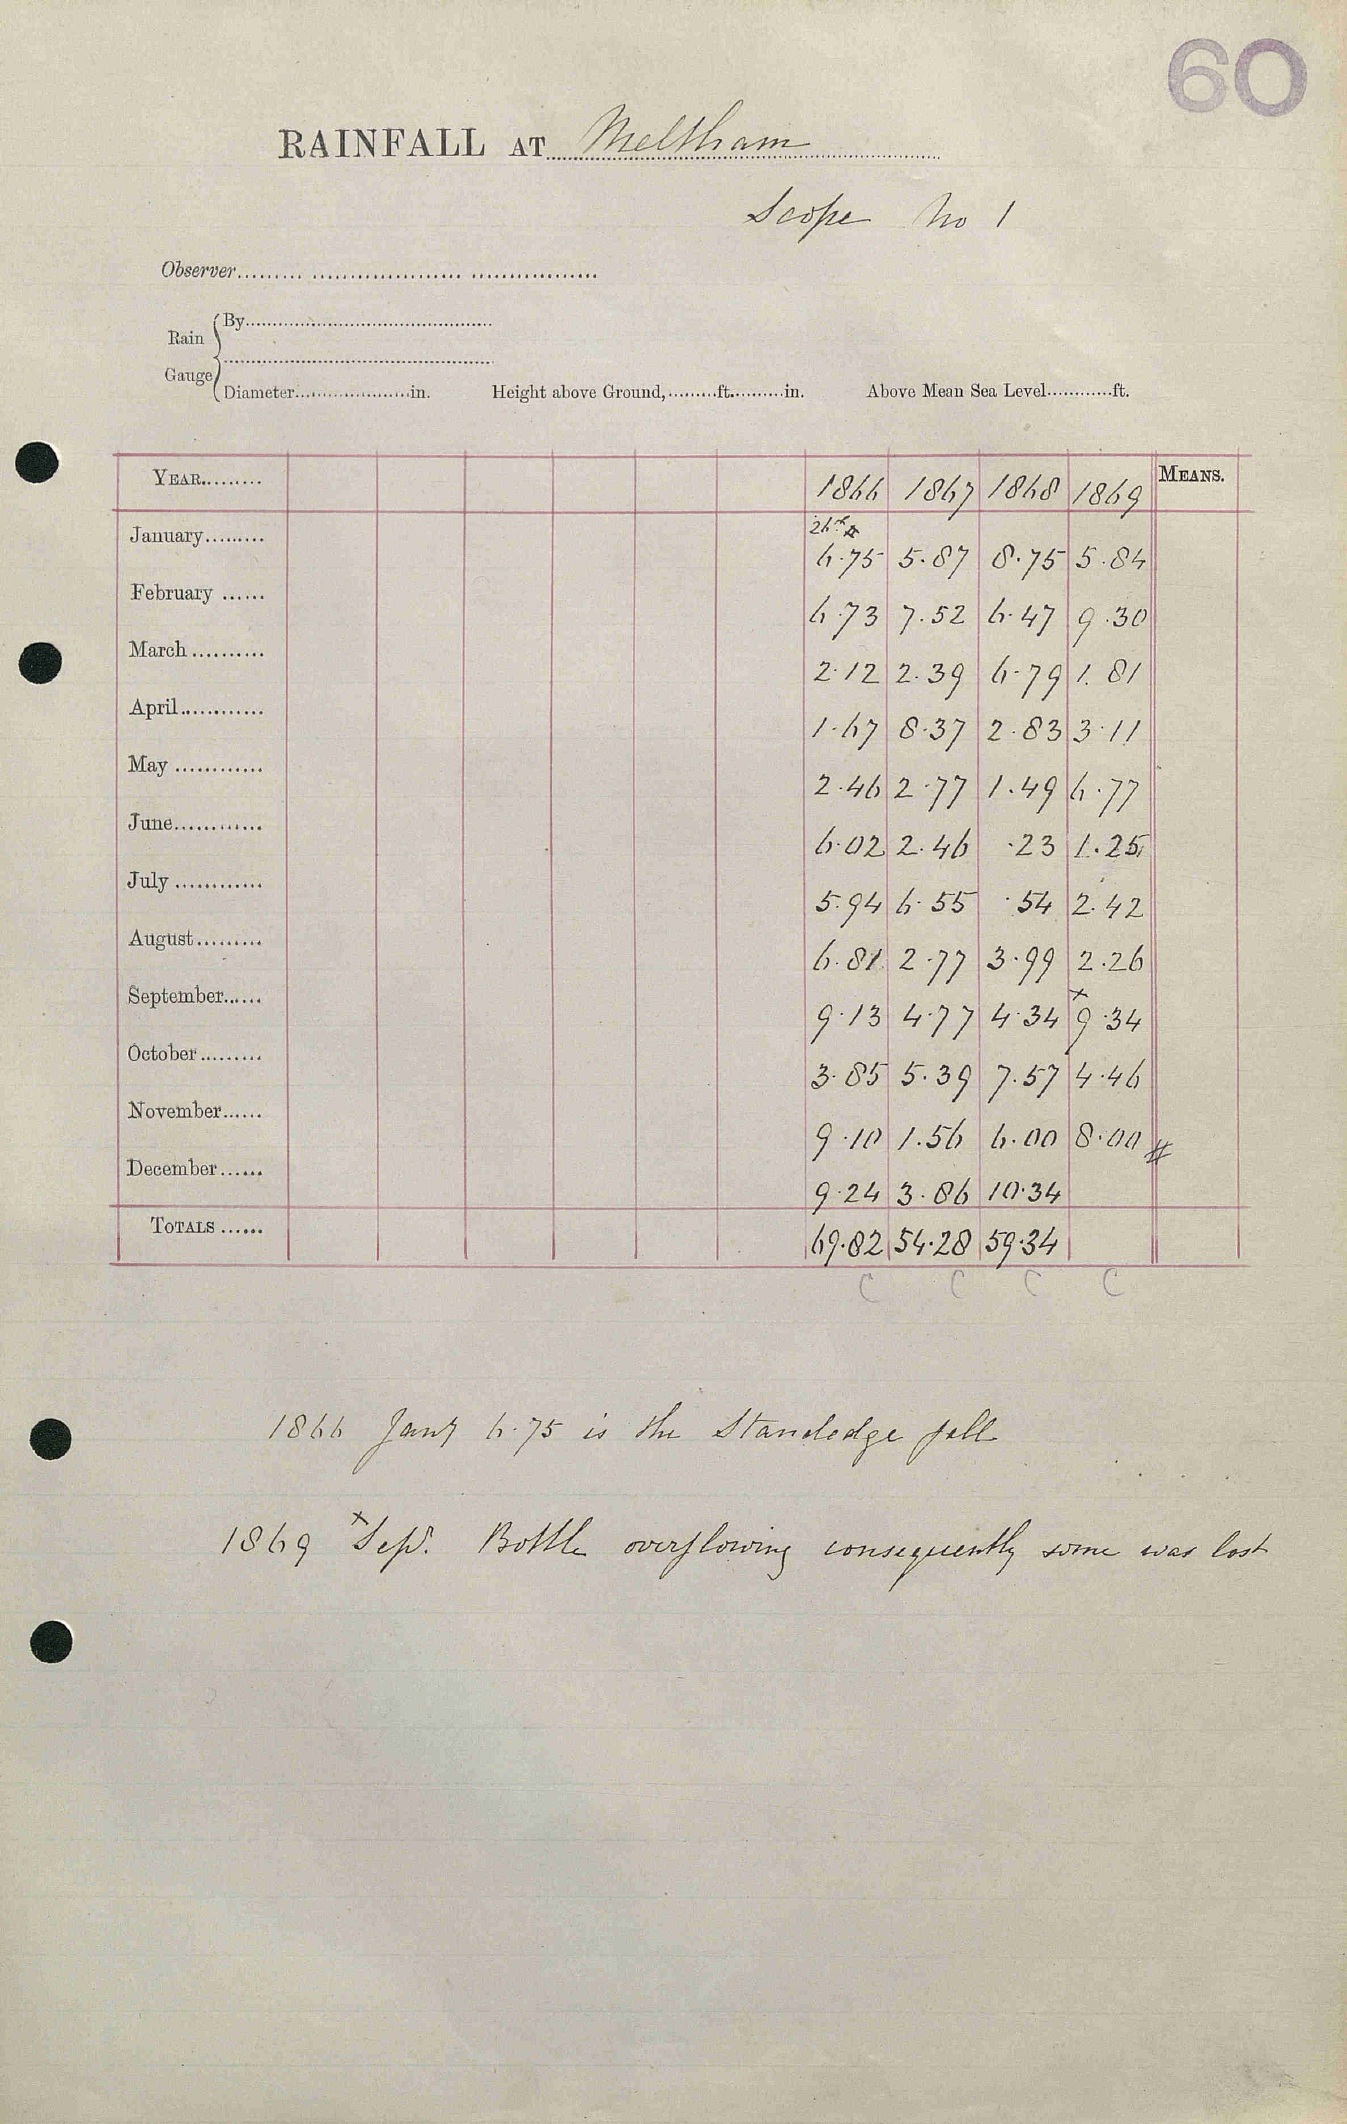 60
RAINFALL AT Meltham
Scope No 1
Observer
Rain Gauge { By
Diameter in. Height above Ground, ft. in. Above Mean Sea Level ft.
YEAR 1866 1867 1868 1869 MEANS.
January 6.75 5.87 8.75 5.84
February 6.73 7.52 6.47 9.30
March 2.12 2.39 6.79 1.81
April 1.67 8.37 2.83 3.11
May 2.46 2.77 1.49 6.77
June 6.02 2.46 .23 1.25
July 5.94 6.55 .54 2.42
August 6.81 2.77 3.99 2.26
September 9.13 4.77 4.34 x 9.34
October 3.85 5.39 7.57 4.46
November 9.10 1.56 6.00 8.00 #
December 9.24 3.86 10.34
TOTALS 69.82 54.28 59.34
C C C C
1866 Jany 6.75 is the Standedge fall
1869 x Sept. Bottle overflowing consequently some was lost